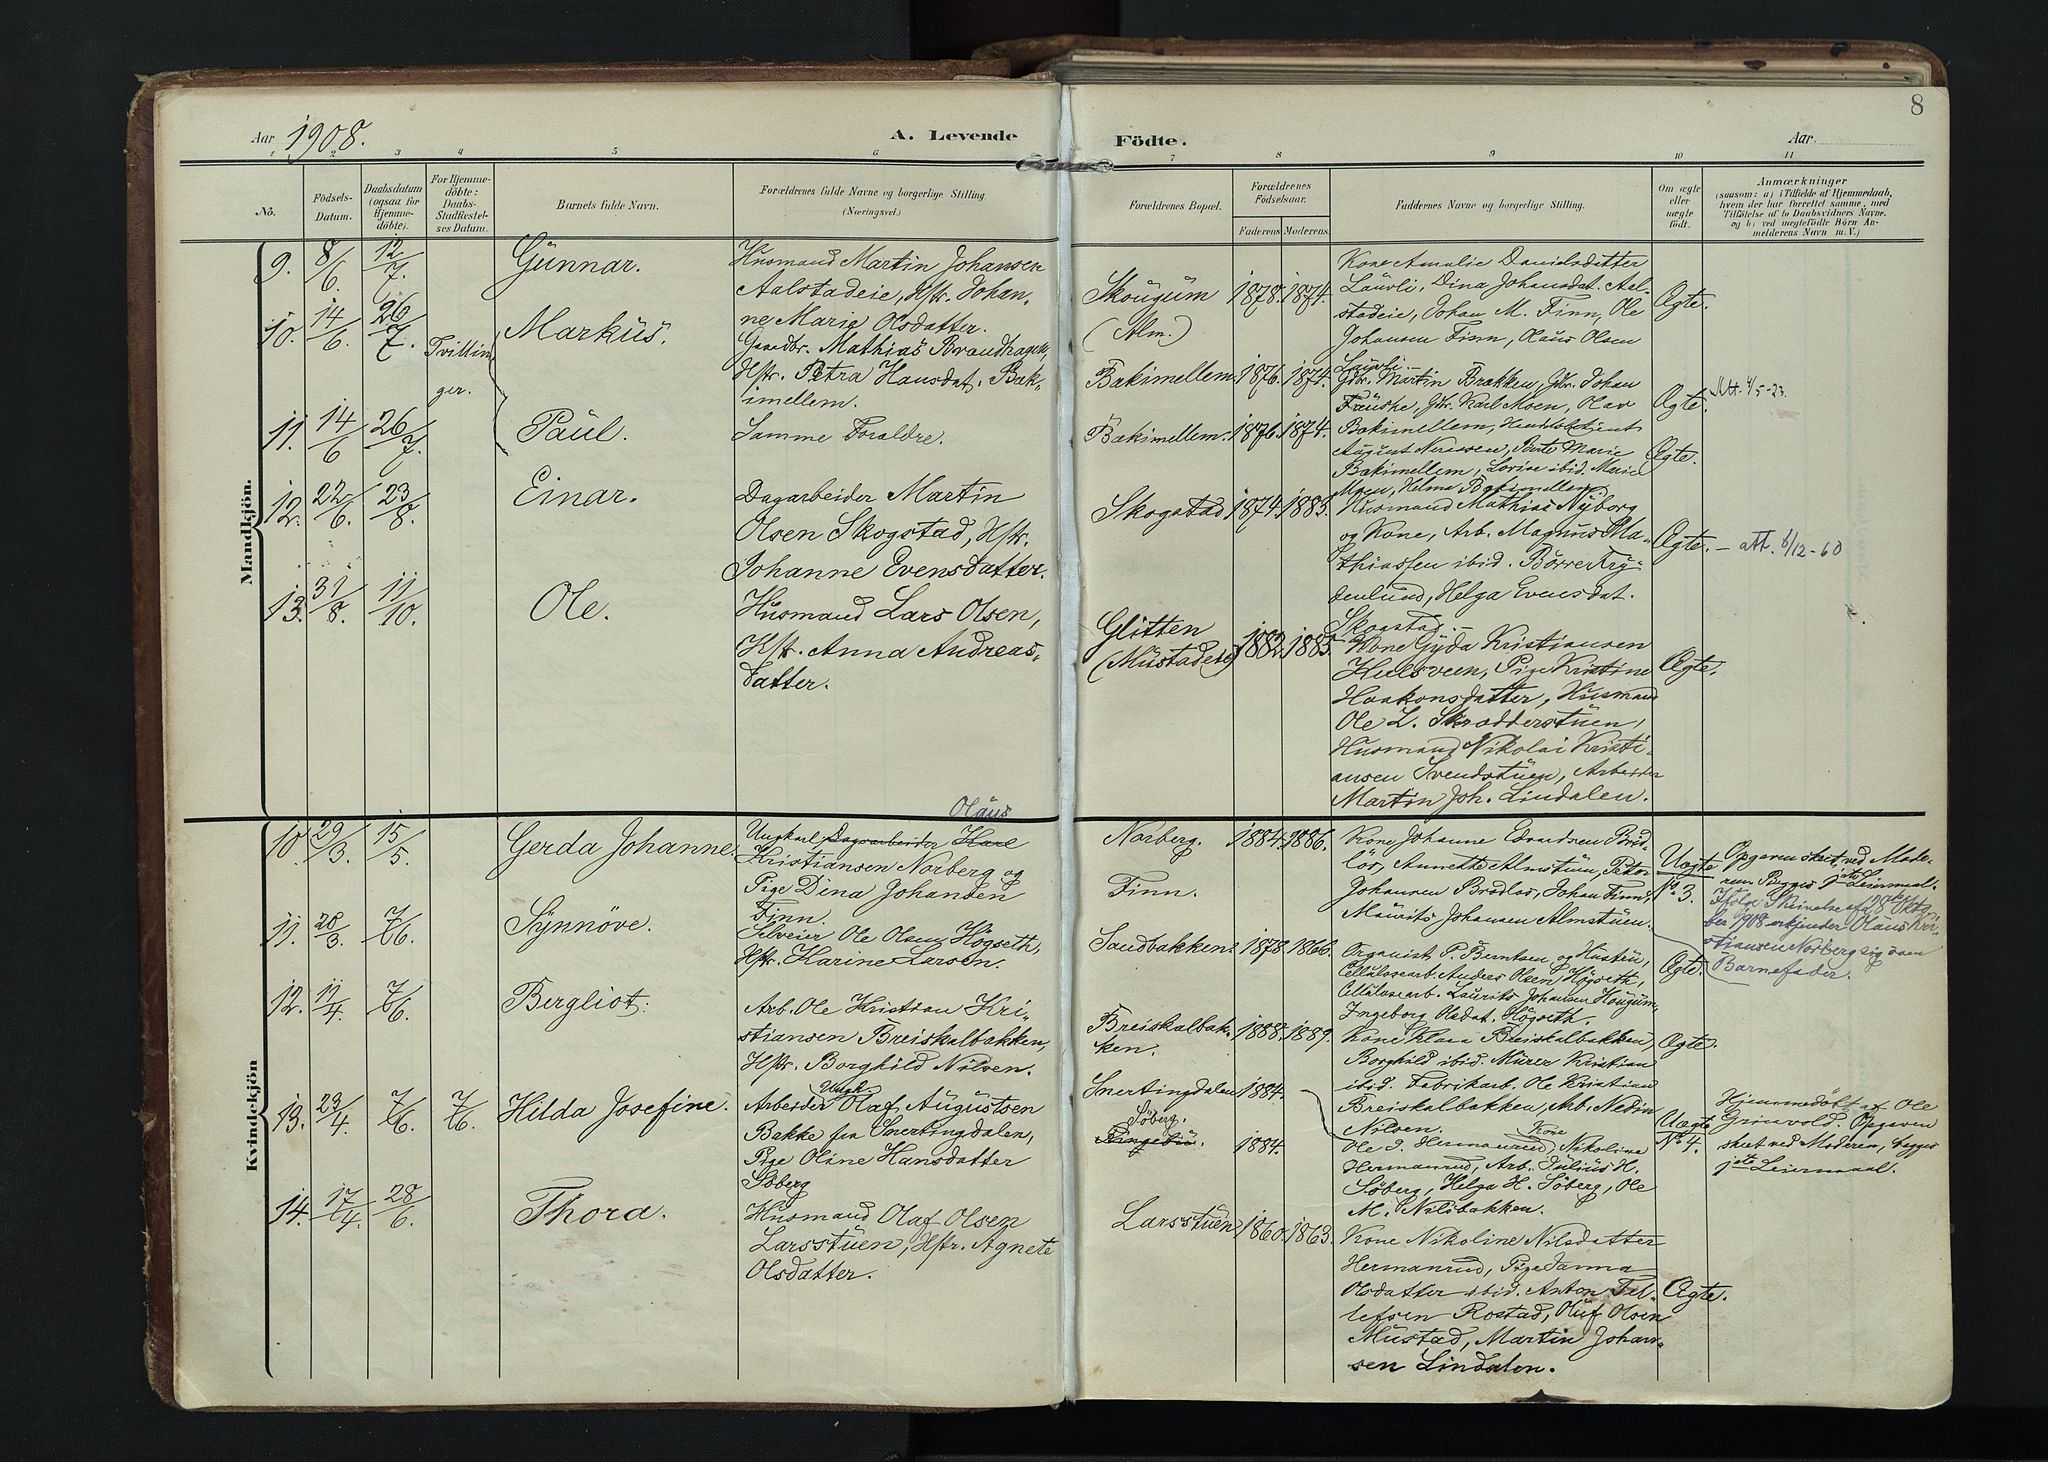 8
Aar 1908.
A. Levende
Födte.
Aar
1 2 3 4 5 6 7 8 9 10 11
No.
Födsels-
Datum.
Daabsdatum
(ogsaa for
Hjemme-
döbte).
For Hjemme-
döbte:
Daabs-
Stadfæstel-
ses Datum.
Barnets fulde Navn.
Forældrenes fulde Navne og borgerlige Stilling
(Næringsvei.)
Forældrenes Bopæl.
Forældrenes
Födselsaar.
Faderens. Moderens.
Faddernes Navne og borgerlige Stilling.
Om ægte
eller
uægte
födt.
Anmærkninger
(saasom: a) i Tilfælde af Hjemmedaab,
hvem der har forrettet samme, med
Tilföielse af to Daabsvidners Navne,
og b) ved uægtefödte Börn An-
melderens Navn m. V.)
Mandkjön.
9. 8/6. 12/7. Günnar.
Husmand Martin Johansen
Aalstadeie, Hstr. Johan-
ne Marie Olsdatter.
Skoŭgŭm
(Alm.)
1878. 1874.
Kone Amalie Danielsdatter
Laŭrli, Dina Johansdat. Aal-
stadeie, Johan M. Finn, Ole
Johansen Finn, Olaus Olsen
Laŭrli.
Ægte.
10. 14/6. 26/7. Tvillin
ger.
Markŭs.
Gaardbr. Mathias Brandhagen,
Hstr. Petra Hansdat. Bak-
imellem.
Bakimellem. 1876. 1874.
Gbr. Martin Brækken, Gbr. Johan
Fraŭske, Gbr. Karl Moen, Olav
Ægte.
Att. 4/5-23.
11. 14/6 26/7. Paŭl.
Samme Foraldre.
Bakimellem. 1876. 1874.
Bakimellem, Handelsbetjent
Aŭgŭst Nilssen, Berte Marie
Bakimellem, Lovise ibid. Marie
Moen, Helma Bakimellem
Ægte.
12. 22/6. 23/8. Einar.
Dagarbeider Martin
Olsen Skogstad, Hstr.
Johanne Evensdatter.
Skogstad 1874. 1883.
Husmand Mathias Nÿborg
og Kone, Arb. Magnŭs Ma-
thiassen ibid. Börre Frÿ-
denlŭnd, Helga Evensdat.
Skogstad.
Ægte. – att. 6/12-60
13. 31/8. 11/10. Ole.
Husmand Lars Olsen,
Hstr. Anna Andreas-
datter.
Glitten
(Mŭstadeie) 1882. 1883.
Kone Gÿda Kristiansen
Hulsveen, Pige Kristine
Haakonsdatter, Husmand
Ole L. Skrædderstŭen,
Husmand Nikolai Kristi-
ansen Svendstŭen, Arbeider
Martin Joh. Lindalen.
Ægte.
Kvindekjön
10. 29/3. 15/5. Gerda Johanne.
Olaŭs
Ungkarl Dagarbeider Karl
Kristiansen Norberg og
Pige Dina Johansen
Finn.
Norberg.
Finn.
1884. 1886.
Kone Johanne Edvardsen Bröd-
lös, Annette Almstŭen, Peter
Johansen Brödlös, Johan Finn,
Maŭrits Johansen Almstŭen.
Uægte
No. 3.
Opgaven skeet ved Mode-
ren. Begges 1ste Leiermaal.
Ifölge Skrivelse af 19de Okto
ber 1908 erkjender Olaŭs Kri-
stiansen Norberg sig som
Barnefader.
11. 28/3. 7/6. Sÿnnöve.
Selveier Ole Olsen Högseth,
Hstr. Karine Larsen.
Sandbakken. 1878. 1866.
Organist P. Berntsen og Hustrŭ,
Cellŭlosearb. Anders Olsen Högseth,
Cellŭlosearb. Laŭrits Johansen Hoŭgŭm,
Ingeborg Olsdat. Högseth.
Ægte.
12. 11/4. 7/6. Bergliot.
Arb. Ole Kristian Kri-
stiansen Breiskalbakken,
Hstr. Borghild Nilven.
Breiskalbak-
ken.
1888. 1889.
Kone Klara Breiskalbakken,
Borghild ibid. Mŭrer Kristian
ibid. Fabrikarb. Ole Kristian
Breiskalbakken, Arb. Nedin
Nilven.
Ægte.
13. 23/4. 7/6. 7/6. Hilda Josefine.
Ungk.
Arbeider Olaf Aŭgŭstsen
Bakke fra Snertingdalen,
Pige Oline Hansdatter
Söberg
Snertingdalen
Söberg.
1884.
1884.
Kone
Ole J. Hermanrud, Nikoline
Hermanrud, Arb. Jŭliŭs H.
Söberg, Helga H. Söberg, Ole
M. Nilsbakken.
Uægte
No. 4.
Hjemmedöbt af Ole
Grönvold. Opgaven
skeet ved Moderen, begges
1ste Leiermaal.
14. 17/4. 28/6. Thora.
Husmand Olaf Olsen
Larsstŭen, Hstr. Agnete
Olsdatter.
Larsstŭen 1860. 1863.
Kone Nikoline Nilsdatter
Hermanrud, Pige Janna
Olsdatter ibid. Anton Tel-
lefsen Rostad, Olŭf Olsen
Mŭstad, Martin Johan-
sen Lindalen.
Ægte.